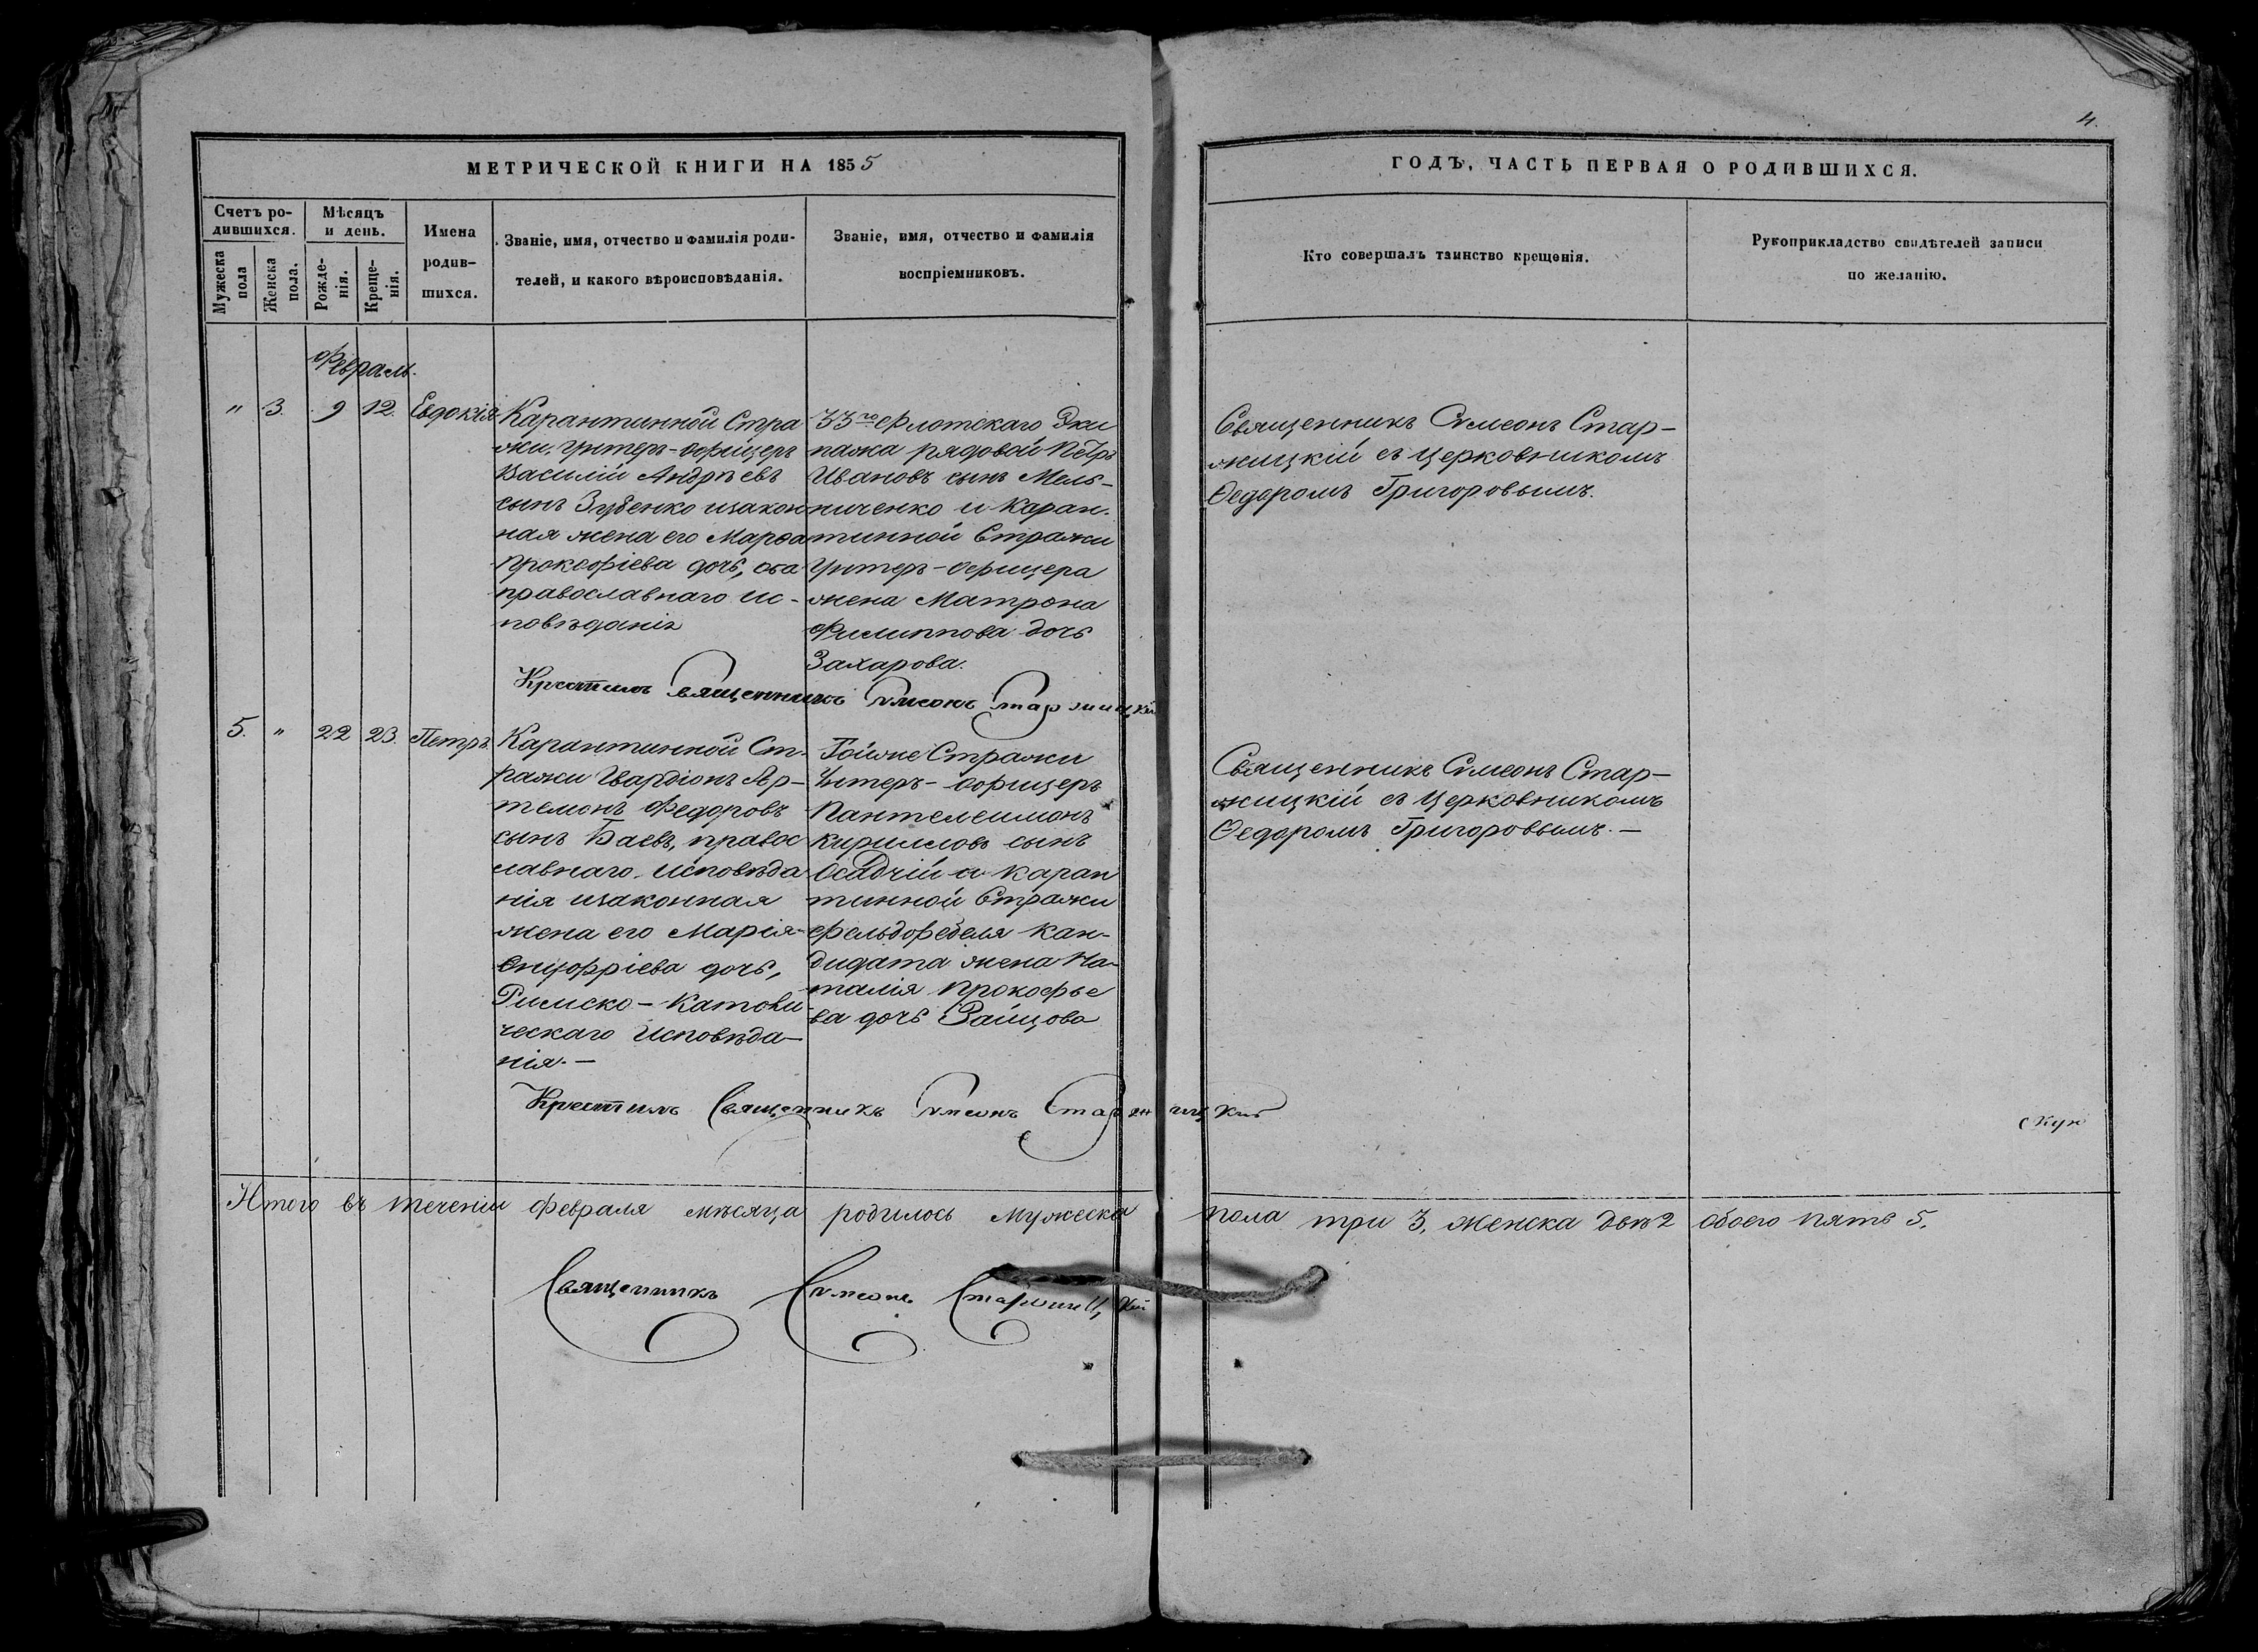 4.
МЕТРИЧЕСКОЙ КНИГИ НА 1855
ГОДЪ, ЧАСТЬ ПЕРВАЯ О РОДИВШИХСЯ.
Счетъ ро-
дившихся.
Мужеска
пола
Женска
пола.
Мѣсяцъ
и день.
Рожде-
нія.
Креще-
нія.
Имена
родив-
шихся.
Званіе, имя, отчество и фамилія роди-
телей, и какого вѣроисповѣданія.
Званіе, имя, отчество и фамилія
воспріемниковъ.
Кто совершалъ таинство крещенія.
Рукоприкладство свидѣтелей записи
по желанію.
Февраль.
" 3. 9 12. Евдокія
Карантинной Стра
жи, Унтеръ-офицеръ
Василій Андрѣевъ
сынъ Зубенко изакон
ная жена его Марѳа
Прокофіева дочь, оба
православнаго ис-
повѣданія
33го Флотскаго Эки
пажа рядовой Петръ
Ивановъ сынъ Мель-
ниченко и Каран-
тинной Стражи
Унтеръ-офицера
жена Матрона
Филиппова дочь
Захарова.
Священникъ Сѵмеонъ Стар-
жицкій съ Церковникомъ
Ѳедоромъ Григоровымъ.
Крестилъ Священникъ Сѵмеонъ Старжицкій
5. " 22 23. Петръ.
Карантинной Ст-
ражи Гвардіонъ Ар-
темонъ Федоровъ
сынъ Баевъ, правос
лавнаго Исповѣда
нія изаконная
жена его Марія
Онуфріева дочь,
Римско-Католи
ческаго Исповѣда-
нія.-
Тойже Стражи
Унтеръ-офицеръ
Пантелеимонъ
Кирилловъ сынъ
Осадчій и Каран
тинной Стражи
фельдфебеля Кан-
дидата жена На-
талія Прокофье
ва дочь Зайцова
Священникъ Сѵмеонъ Стар-
жицкій съ Церковникомъ
Ѳедоромъ Григоровымъ.-
Крестилъ Священникъ Сѵмеонъ Старжицкій
Итого въ теченіи февраля мѣсяца родилось мужеска пола три 3, женска двѣ 2 обоего пять 5.
Священникъ Сѵмеонъ Старжицкій